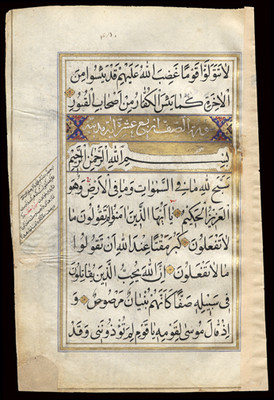 لا تتولوا قوما غضب الله عليهم قد يئسوا من
الاخرة كما يئس الكفار من اصحاب القبور
سورة الصف اربع عشرة اية مدنية
بسم الله الرحمن الرحيم
سبح لله ما فى السموات وما فى الارض وهو
العزيز الحكيم يا ايها الذين امنوا لم تقولون ما
لا تفعلون كبر مقتا عند الله ان تقولوا
ما لا تفعلون ان الله يحب الذين يقاتلون
فى سبيله صفا كانهم بنيان مرصوص و
اذ قال موسى لقومه يا قوم لم تؤذوننى وقد